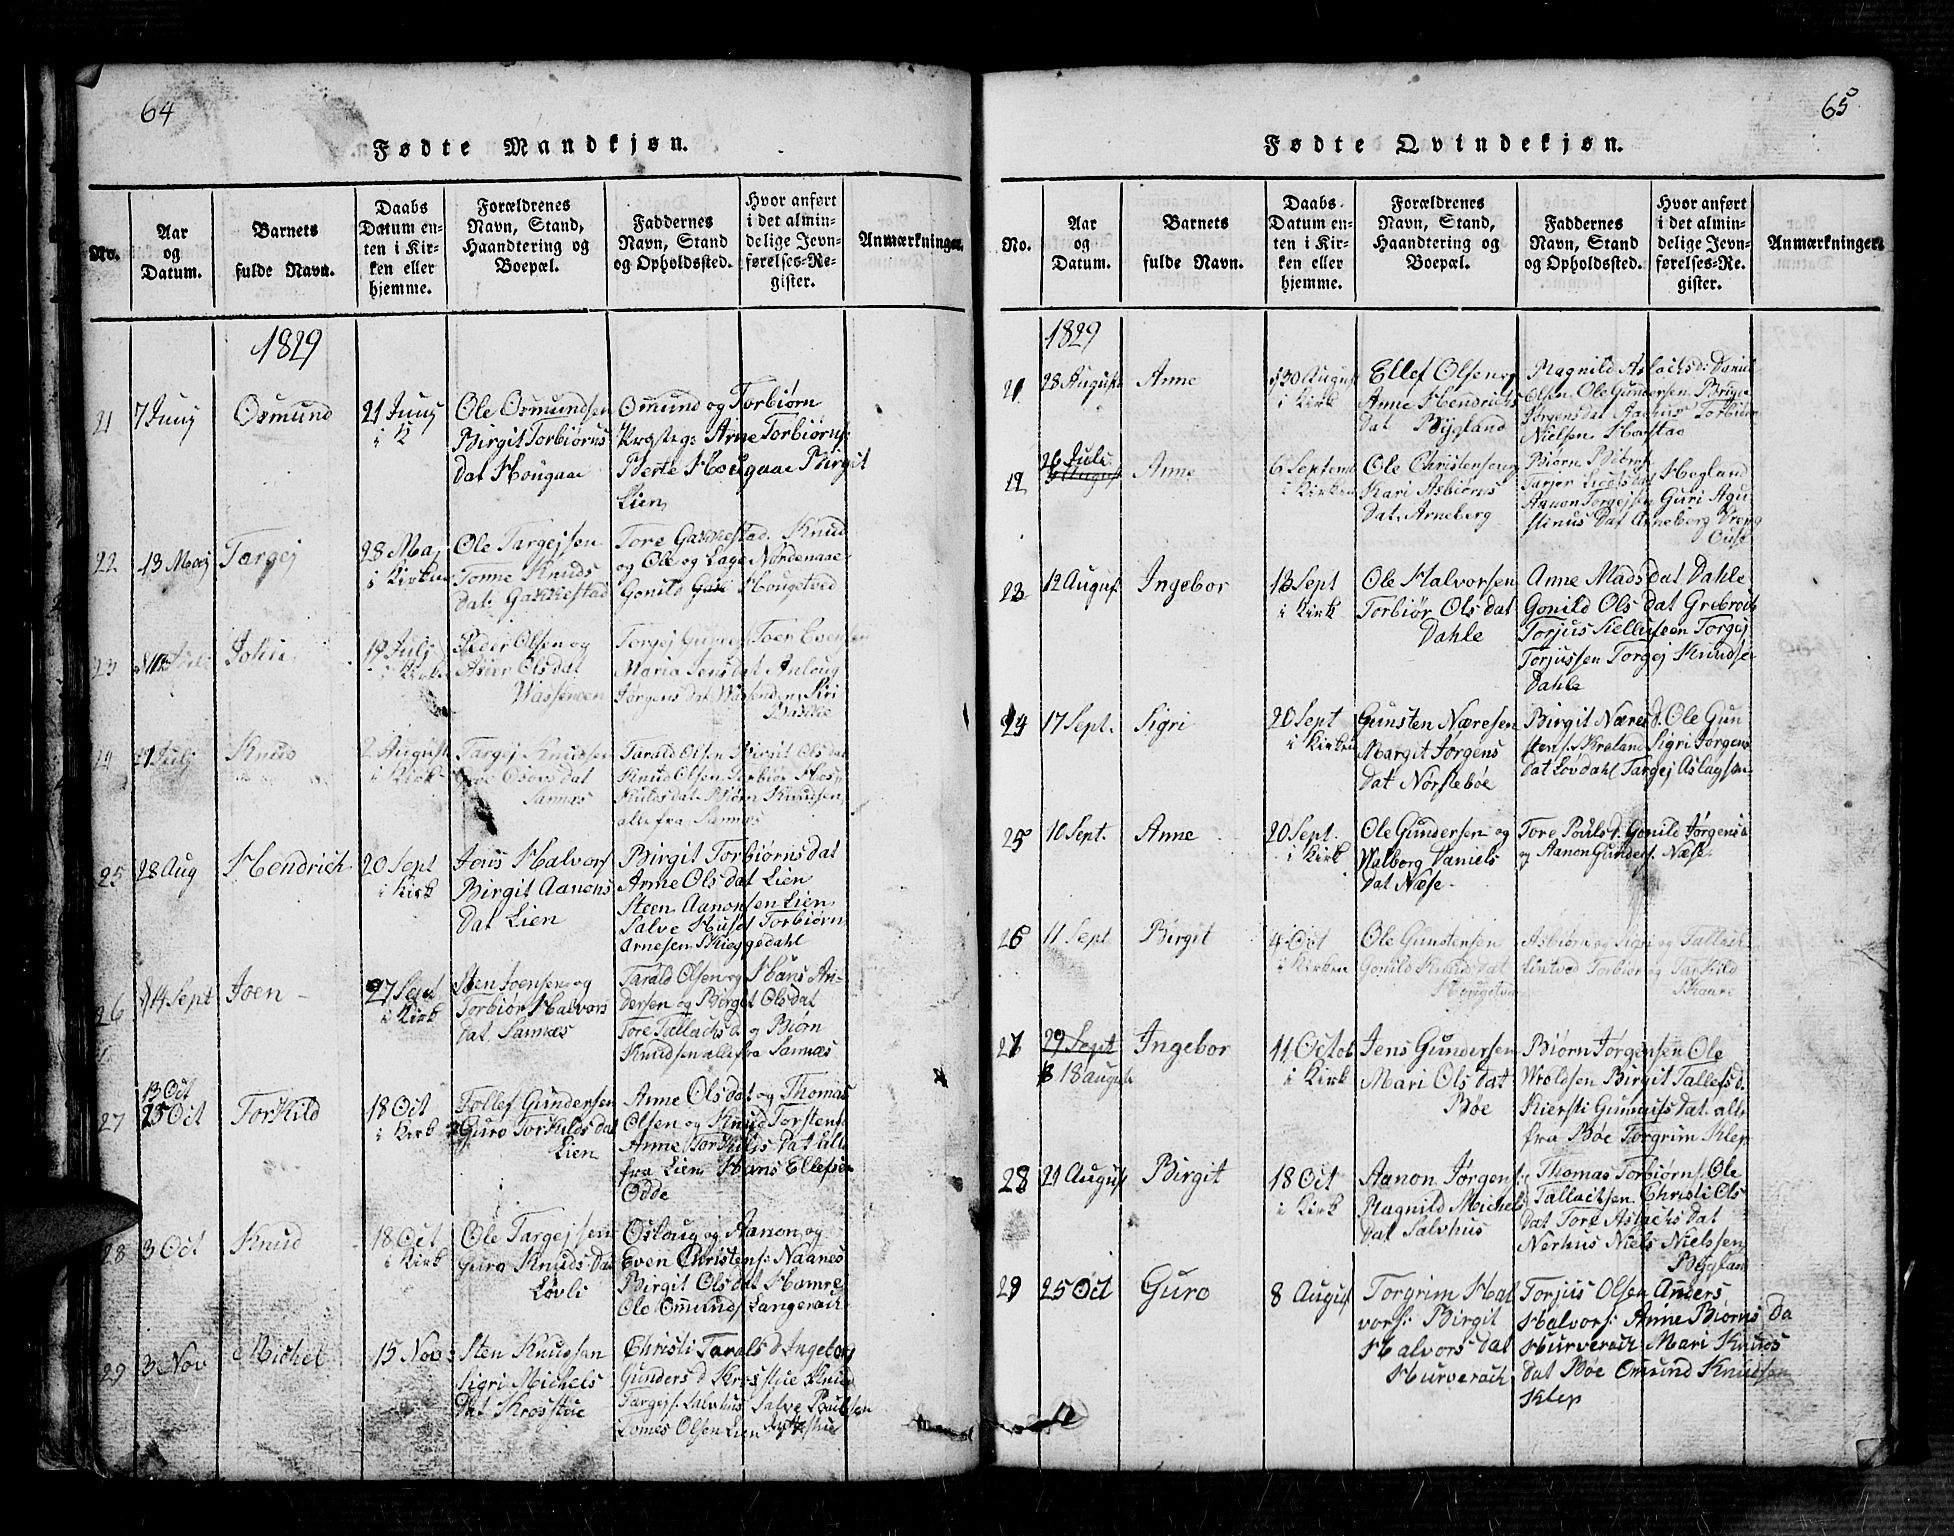 64
Fødte Mandkjøn.
No.
Aar
og
Datum.
Barnets
fulde Navn.
Daabs
Datum en-
ten i Kir-
ken eller
hjemme.
Forældrenes
Navn, Stand,
Haandtering og
Boepæl.
Faddernes
Navn, Stand
og Opholdssted.
Hvor anført
i det almin-
delige Jevn-
førelses-Re-
gister.
Anmærkninger.
1829
21
7 Junj
Osmund
21 Junj
i K
Ole Osmundsen
Birgit Torbiørns
Dat Hougaae
Osmund og Torbiørn
Arne Torbiørns:
Berte Hougaae Birgit
Lien
22
13 Maj
Targej
28 Maj
i Kirken
Ole Targejsen
Tonne Knuds
Dat:
Tore Knud
og Ole og Lage Nordenaae
Gonild Hougetved
23
John
i Kirken
Peder Olsen og
Asier Olsdat
Torgej Toer Evensen
Maria Jensdat
Jørgens dat
24
Julj
Knud
2 August
i Kirk
Targej Knudsen
Sannæs
Tarald Olsen Birgit Olsdat
Knud Olsen Torbiør
Biørn Knudsen,
alle fra Sannæs
25
28 Aug
Hendrich
20 Sept
i Kirk
Jens Halvors
Birgit Aanons
Dat Lien
Birgit Torbiørns dat
Anne Ols dat Lien
Steen Aanonsen Lien,
Salve Huset Torbiørn
Arnesen Skieggedahl
26
14 Sept
Joen
27 Sept
i Kirk
Sten Joensen og
Torbiør Halvors
Dat. Sannæs
Tarald Olsen og Hans An-
dersen og Birgit Olsdat
Tore Tallachs d. og Biørn
Knudsen alle fra Sannæs
27
13 Oct
25 Oct
Torkild
18 Oct
i Kirk
Tollef Gundersen
Guro Torkilds dat
Lien
Anne Olsdat og Thomas
Olsen og Knud Torstens
Anne Torkilds Dat alle
fra Lien Hans Ellefsen
Odde
28
3 Oct
Knud
18 Oct
i Kirk
Ole Targejsen
Guro Knuds Dat
Løvli
Oslaug og Aanon og
Even Christens: Naanes
Birgit Olsdat Hamre
Ole Omunds Langerach
29
3 Nov
Michel
15 Nov:
Sten Knudsen
Sigri Michels
Dat Krosstue
Christi Taralsd Ingeborg
Gunders d Krosstue Knud
Targejs. Salvhus Salve Poulsen
Tomes Olsen Lien
65
Fødte Qvindekjøn.
No.
Aar
og
Datum.
Barnets
fulde Navn.
Daabs-
Datum en-
ten i Kir-
ken eller
hjemme.
Forældrenes
Navn, Stand,
Haandtering og
Boepæl.
Faddernes
Navn, Stand
og Opholdssted.
Hvor anført
i det almin-
delige Jevn-
førelses-Re-
gister.
Anmærkninger.
1829
21
28 August
Anne
30 August
i Kirk
Ellef Olsen og
Anne Hendrichs
Dat Bygland
Ragnild Aslachs d: Daniel
Olsen Ole Gundersen
Jørgensdat Torbiør
Nielsen Harstad
26 Juli
Anne
6 Septemb
i Kirken
Ole Christensen og
Kari Asbiørns
Dat. Arneberg
Biørn Hegland
Tarjer
Aanon Torgejsen Guri Agu-
stinus Dat Arneberg Dreng
23
12 August
Ingebor
13 Sept
i Kirk
Ole Halvorsen
Torbiør Ols dat
Dahle
Anne Mads dat Dahle
Gonild Ols dat Grebrock
Torjus Kellefsen Torgej
Torjussen Torgej Knudsen
Dahle
24
17 Sept.
Sigri
20 Sept
i Kirken
Gunsten Næresen
Margit Jorgens
Dat Norstebøe
Birgit Næresd. Ole Gun
stens. Sigri Jorgens
Dat Løvdahl Targej Aslagsen
25
10 Sept.
Anne
20 Sept.
i Kirk
Ole Gundersen og
Walborg Daniels
Dat Næse
Tore Pouls d. Gonild Jørgens d
og Aanon Gunders. Næse
26
11 Sept
Birgit
4 Oct
i Kirken
Ole Gunstensen
Gonild Knuds dat
Asbiørn og Sigri og Tallach
Lintved Torbiør og Tarkild
Skaare
27
29 Sept
18 august
Ingebor
11 Octob
i Kirk
Jens Gundersen
Mari Ols dat
Bøe
Biørn Jørgensen Ole
Wroldsen Birgit Tallefs d.
Kiersti Gunnufs Dat. alle
fra Bøe Torgrim Klep
28
21 August
Birgit
18 Oct
i Kirk
Aanon Jørgens
Ragnild Michels
Dat Salvhus
Thomas Torbiørns. Ole
Tallachsen Christi Ols
Dat Tore Aslachs dat
Nerhus Niels Nielsen
Bygland
29
25 Oct
Guro
8 August
Torgrim Hal
vors: Birgit
Halvors dat
Hurverach
Torjus Olsen Anders
Halvors: Anne Biørns Da
Hurverach Mari Knuds
Dat Bøe Omund Knudsen
Klep